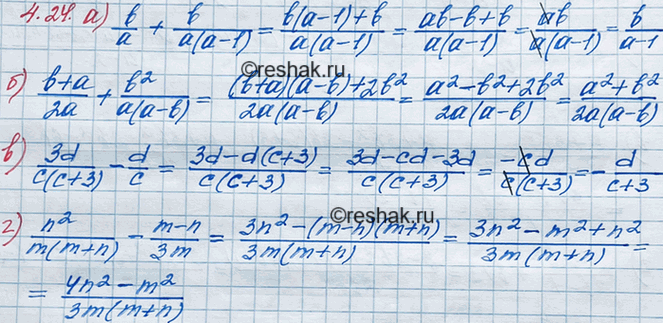 4.24. а) b/a + b/a(a-1) = b(a-1)+b/a(a-1) = ab-b+b/a(a-1) = ab/a(a-1) = b/a-1
©reshak.ru
б) b+a/2a + b²/a(a-b) = (b+a)(a-b)+2b²/2a(a-b) = a²-b²+2b²/2a(a-b) = a²+b²/2a(a-b)
в) 3d/c(c+3) - d/c = 3d-d(c+3)/c(c+3) = 3d-cd-3d/c(c+3) = -cd/c(c+3) = -d/c+3
©reshak.ru
г) n²/m(m+n) - m-n/3m = 3n²-(m-n)(m+n)/3m(m+n) = 3n²-m²+n²/3m(m+n) =
= 4n²-m²/3m(m+n)